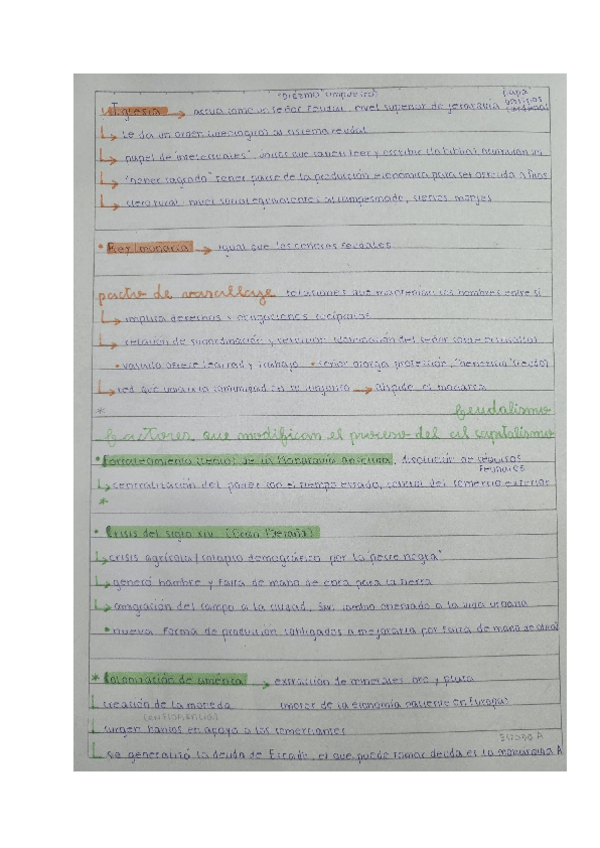 "DIEZMO" (impuesto) Papa
Iglesia → actúa como un señor feudal, nivel superior de jerarquía
↳ Le da un orden ideológico al sistema feudal
↳ papel de "intelectuales", únicos que saben leer y escribir
↳ tener parte de la producción económica para ser
↳ clero rural: nivel social equivalente al campesinado, siervos, monjes
* Rey/monarca → igual que los señores feudales
pacto de vasallaje relaciones que los hombres entre sí
↳ implica derechos y obligaciones recíprocas
↳ relación de subordinación y
• vasallo ofrece lealtad y trabajo • señor otorga protección, "beneficio"
↳ red que la comunidad en su conjunto → cúspide el monarca
*
feudalismo
factores que modifican el proceso del al capitalismo
* Fortalecimiento de la Monarquía absoluta,
↳ centralización del poder con el tiempo estado, control del comercio exterior
*
• Crisis del siglo XIV
↳ crisis agrícola/colapso demográfico por la "peste negra"
↳ generó hambre y falta de mano de obra para la tierra
↳ emigración del campo a la ciudad, orientado a la vida urbana
• nueva forma de producción (obligados a mejorarla por falta de mano de obra)
* Colonización de América → extracción de minerales oro y plata
↳ creación de la moneda (motor de la economía en Europa)
↳ surgen bancos en apoyo a los comerciantes
↳ se generalizó la deuda de Estado, el que puede tomar deuda es la monarquía A